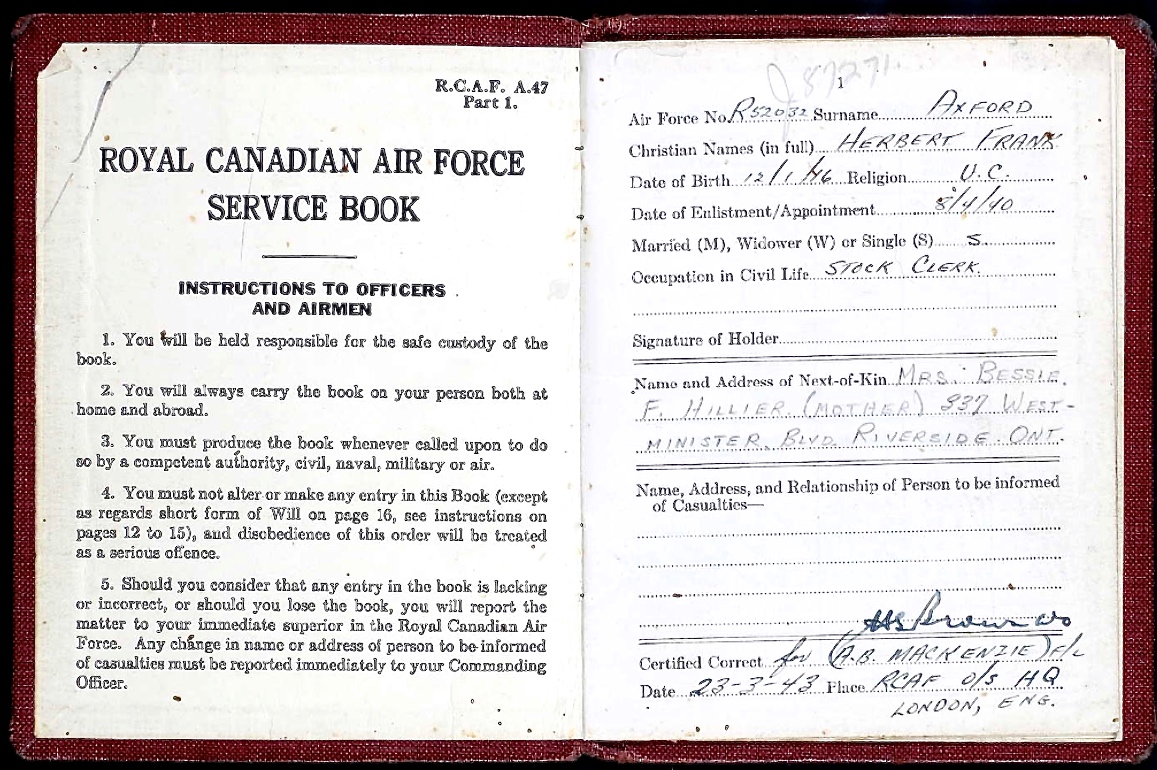 R.C.A.F. A.47
Part 1.
ROYAL CANADIAN AIR FORCE
SERVICE BOOK
INSTRUCTIONS TO OFFICERS
AND AIRMEN
1. You will be held responsible for the safe custody of the
book.
2. You will always carry the book on your person both at
home and abroad.
3. You must produce the book whenever called upon to do
so by a competent authority, civil, naval, military or air.
4. You must not alter or make any entry in this Book (except
as regards short form of Will on page 16, see instructions on
pages 12 to 15), and disobedience of this order will be treated
as a serious offence.
5. Should you consider that any entry in the book is lacking
or incorrect, or should you lose the book, you will report the
matter to your immediate superior in the Royal Canadian Air
Force. Any change in name or address of person to be informed
of casualties must be reported immediately to your Commanding
Officer.
J87271.
1
Air Force No. R52032 Surname AXFORD
Christian Names (in full) HERBERT FRANK
Date of Birth 12/1/16 Religion U.C.
Date of Enlistment/Appointment 8/4/40
Married (M), Widower (W) or Single (S) S
Occupation in Civil Life STOCK CLERK.
Signature of Holder
Name and Address of Next-of-Kin MRS. BESSIE.
F. HILLIER (MOTHER) 337 WEST-
MINISTER BLVD RIVERSIDE ONT.
Name, Address, and Relationship of Person to be informed
of Casualties—
Certified Correct for (A.B. MACKENZIE) F/L
Date 23-3-43 Place RCAF O/S HQ
LONDON, ENG.